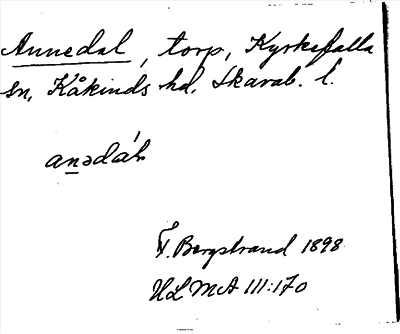 Annedal, torp, Kyrkefalla
sn, Kåkinds hd, Skarab. l.
anədáL
T. Bergstrand 1898
ULMA 111:170